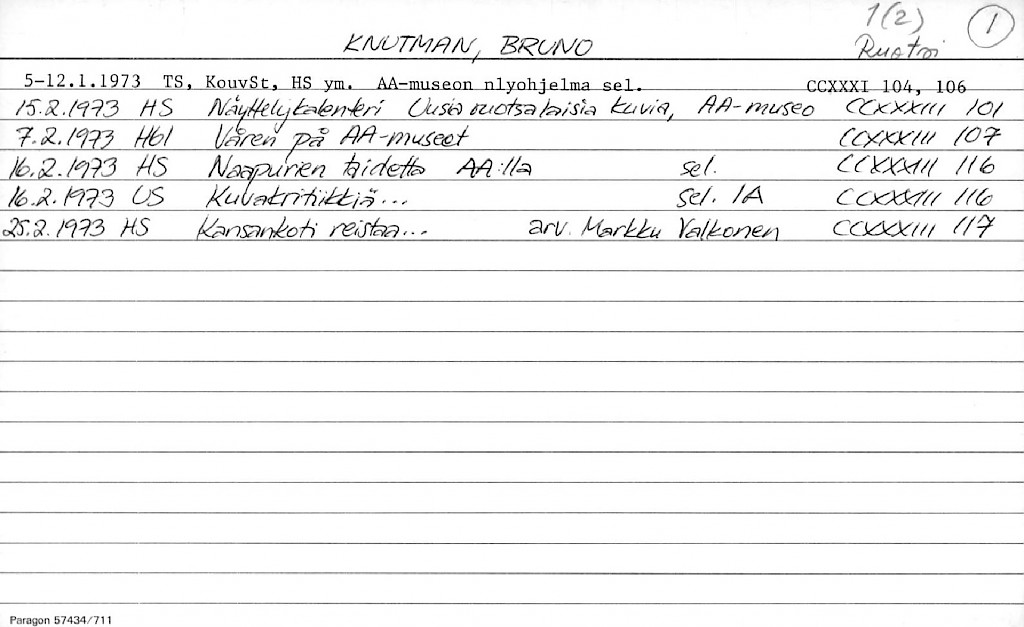 1(2) 1
KNUTMAN, BRUNO Ruotsi
5-12.1.1973 TS, KouvSt, HS ym. AA-museon nlyohjelma sel. CCXXXI 104, 106
15.2.1973 HS Näyttelykalenteri Uusia ruotsalaisia kuvia, AA-museo CCXXXIII 101
7.2.1973 Hbl Våren på AA-museet CCXXXIII 107
16.2.1973 HS Naapurien taidetta AA:lla sel. CCXXXIII 116
16.2.1973 US Kuvakritiikkiä... sel. IA CCXXXIII 116
25.2.1973 HS Kansankoti reistaa... arv. Markku Valkonen CCXXXIII 117
Paragon 57434/711